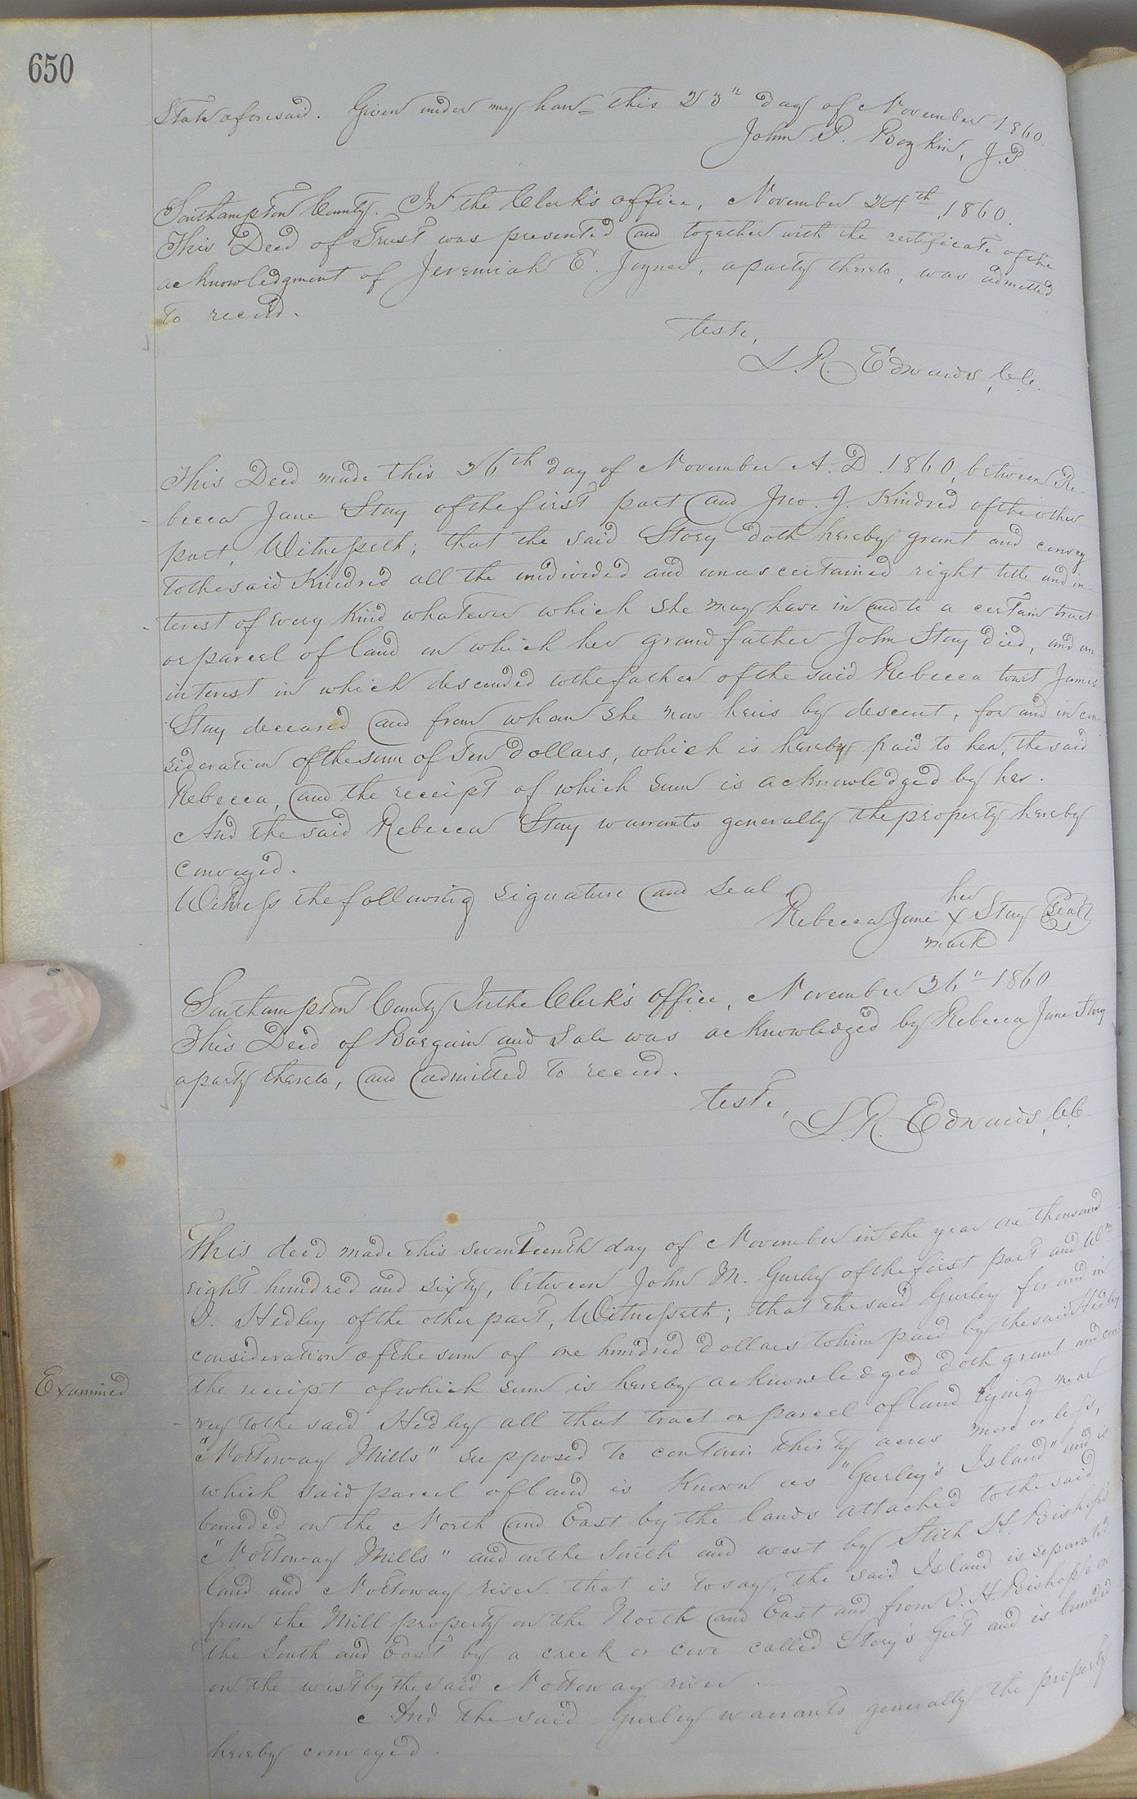 650
State aforesaid. Given under my hand this 23" day of November 1860.
John P. Boykin, J.P
Southampton County. In the Clerk's office, November 24th, 1860.
This Deed of Trust was presented and together with the certificate of the
acknowledgment of Jeremiah E. Joyner, a party thereto, was admitted
to record.
teste,
L. R. Edwards, C.C.
This Deed made this 26th day of November A. D. 1860, between Re-
becca Jane Story of the first part and Jno. J. Kindred of the other
part, Witnesseth; that the said Story doth hereby grant and convey
to the said Kindred all the undivided and unascertained right title and in-
terest of every kind whatever which she may have in and to a certain tract
or parcel of land on which her grandfather John Story died, and an
interest in which descended to the father of the said Rebecca to wit James
Story deceased and from whom she now heirs by descent, for and in con-
sideration of the sum of Ten dollars, which is hereby paid to her, the said
Rebecca, and the receipt of which sum is acknowledged by her.
And the said Rebecca Story warrants generally the property hereby
conveyed.
Witness the following signature and seal.
her
Rebecca Jane X Story Seal
mark
Southampton County In the Clerk's office, November 26" 1860
This Deed of Bargain and Sale was acknowledged by Rebecca Jane Story
a party thereto, and admitted to record.
teste,
L. R. Edwards, C.C
This deed made this seventeenth day of November in the year one thousand
eight hundred and sixty, between John M. Gurley of the first part and Wm
S. Hedley of the other part, Witnesseth; that the said Gurley for and in
consideration of the sum of one hundred dollars to him paid by the said Hedley
Examined
the receipt of which sum is hereby acknowledged doth grant and con
vey to the said Hedley all that tract or parcel of land lying near
"Nottoway Mills" supposed to contain thirty acres more or less,
which said parcel of land is known as "Gurley's Island" and is
bounded on the North and East by the lands attached to the said
"Nottoway Mills" and on the South and west by Stith H. Bishop's
land and Nottoway river - that is to say, the said Island is separated
from the Mill property on the North and East and from S. H. Bishop's on
the South and East by a creek or cove called Story's Gut and is bounded
on the west by the said Nottoway river.
And the said Gurley warrants generally the property
hereby conveyed.